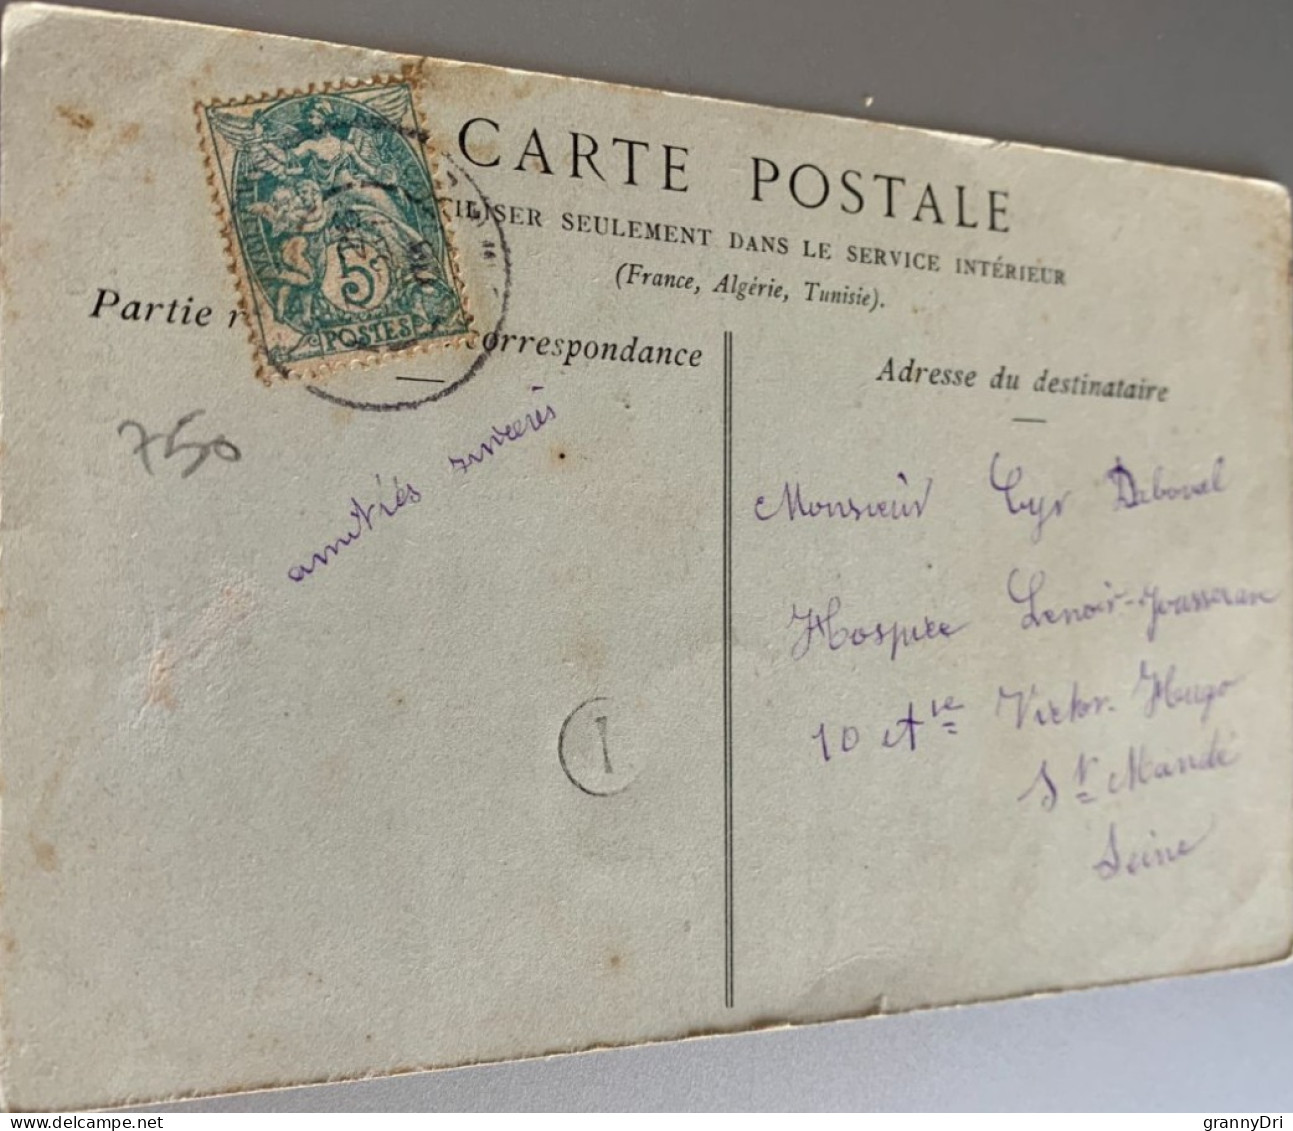 CARTE POSTALE
ILISER SEULEMENT DANS LE SERVICE INTÉRIEUR
(France, Algérie, Tunisie).
Partie r correspondance
Adresse du destinataire
5c
POSTES
750
amitiés sincères
1
Monsieur Cyr Daboval
Hospice Lenoir-Jousseran
10 Ave Victor Hugo
St Mandé
Seine
www.delcampe.net
grannyDri